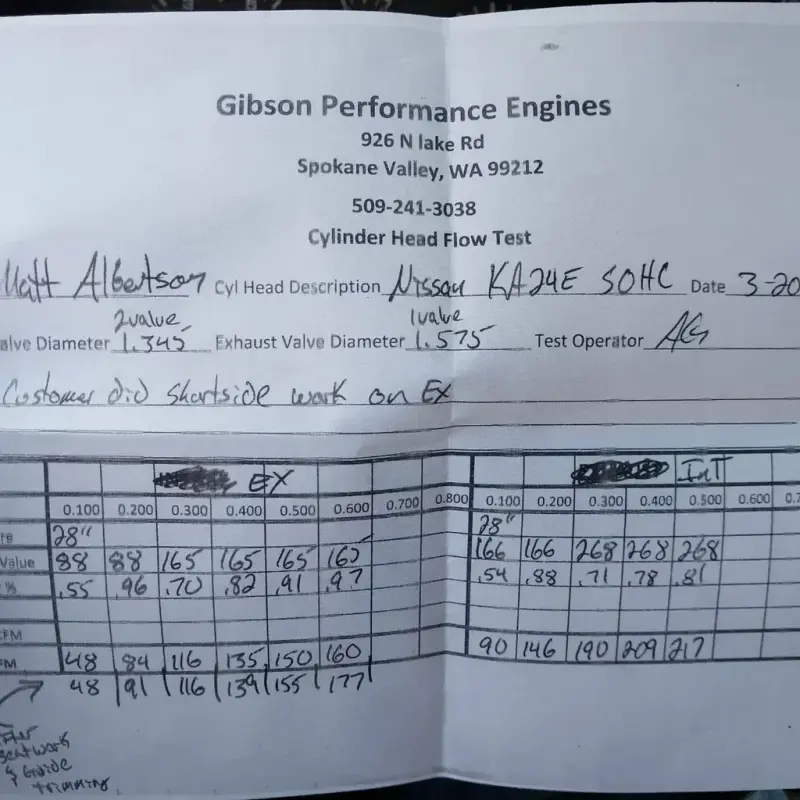 Gibson Performance Engines
926 N lake Rd
Spokane Valley, WA 99212
509-241-3038
Cylinder Head Flow Test
Matt Albertson Cyl Head Description Nissan KA24E SOHC Date 3-20
2valve 1valve
alve Diameter 1.345 Exhaust Valve Diameter 1.575 Test Operator AG
Customer did shortside work on EX
EX Int
0.100 0.200 0.300 0.400 0.500 0.600 0.700 0.800 0.100 0.200 0.300 0.400 0.500 0.600 0.7
re 28" 28"
Value 88 88 165 165 165 165 166 166 268 268 268
% .55 .96 .70 .82 .91 .97 .54 .88 .71 .78 .81
CFM
PM 48 84 116 135 150 160 90 146 190 209 217
48 91 116 139 155 177
Seatwork
& Guide
trimming